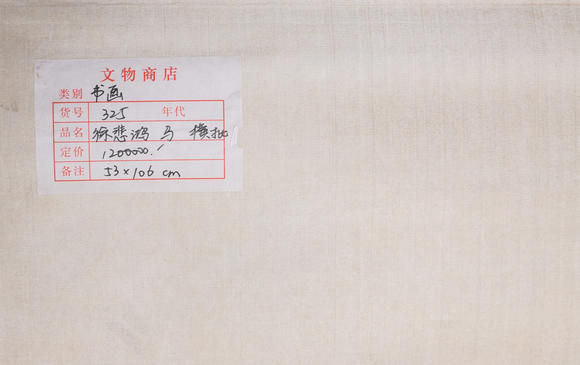 文物商店
类别 书画
货号 325 年代
品名 徐悲鸿 马 横批
定价 1200000.
备注 53×106 cm